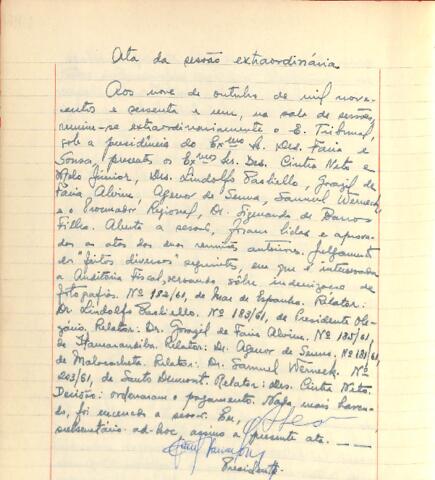 Ata da sessão extraordinária
Aos nove de outubro de mil nove-
centos e sessenta e um, na sala de sessões,
reuniu-se extraordinariamente o E. Tribunal,
sob a presidência do Exmo Sr. Des. Faria e
Sousa, presentes os Exmos Srs. Des. Cintra Neto e
Melo Júnior, Drs. Lindolfo Paoliello, Gorazil de
Faria Alvim, Agenor de Senna, Samuel Werneck,
e o Procurador Regional, Dr. Sigmundo de Barros
Filho. Aberta a sessão, foram lidas e aprova-
das as atas das duas reuniões anteriores. Julgamento
de "feitos diversos" seguintes, em que é interessada
a Auditoria Fiscal, versando sôbre indenização de
fotografias. Nº 182/61, de Mar de Espanha. Relator:
Dr Lindolfo Paoliello. Nº 183/61, de Presidente Ole-
gário. Relator: Dr. Gorazil de Faria Alvim. Nº 185/61,
de Itamarandiba. Relator: Dr. Agenor de Senna. Nº 181/61,
de Malacacheta. Relator: Dr. Samuel Werneck. Nº
203/61, de Santos Dumont. Relator: Des. Cintra Neto.
Decisão: ordenaram o pagamento. Nada mais haven-
do, foi encerrada a sessão. Eu,
secretário ad-hoc, assino a presente ata.
Presidente.